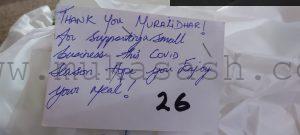 THANK YOU MURALIDHAR!
for Supporting a Small
business this COVID
Season Hope you Enjoy
your meal!
26